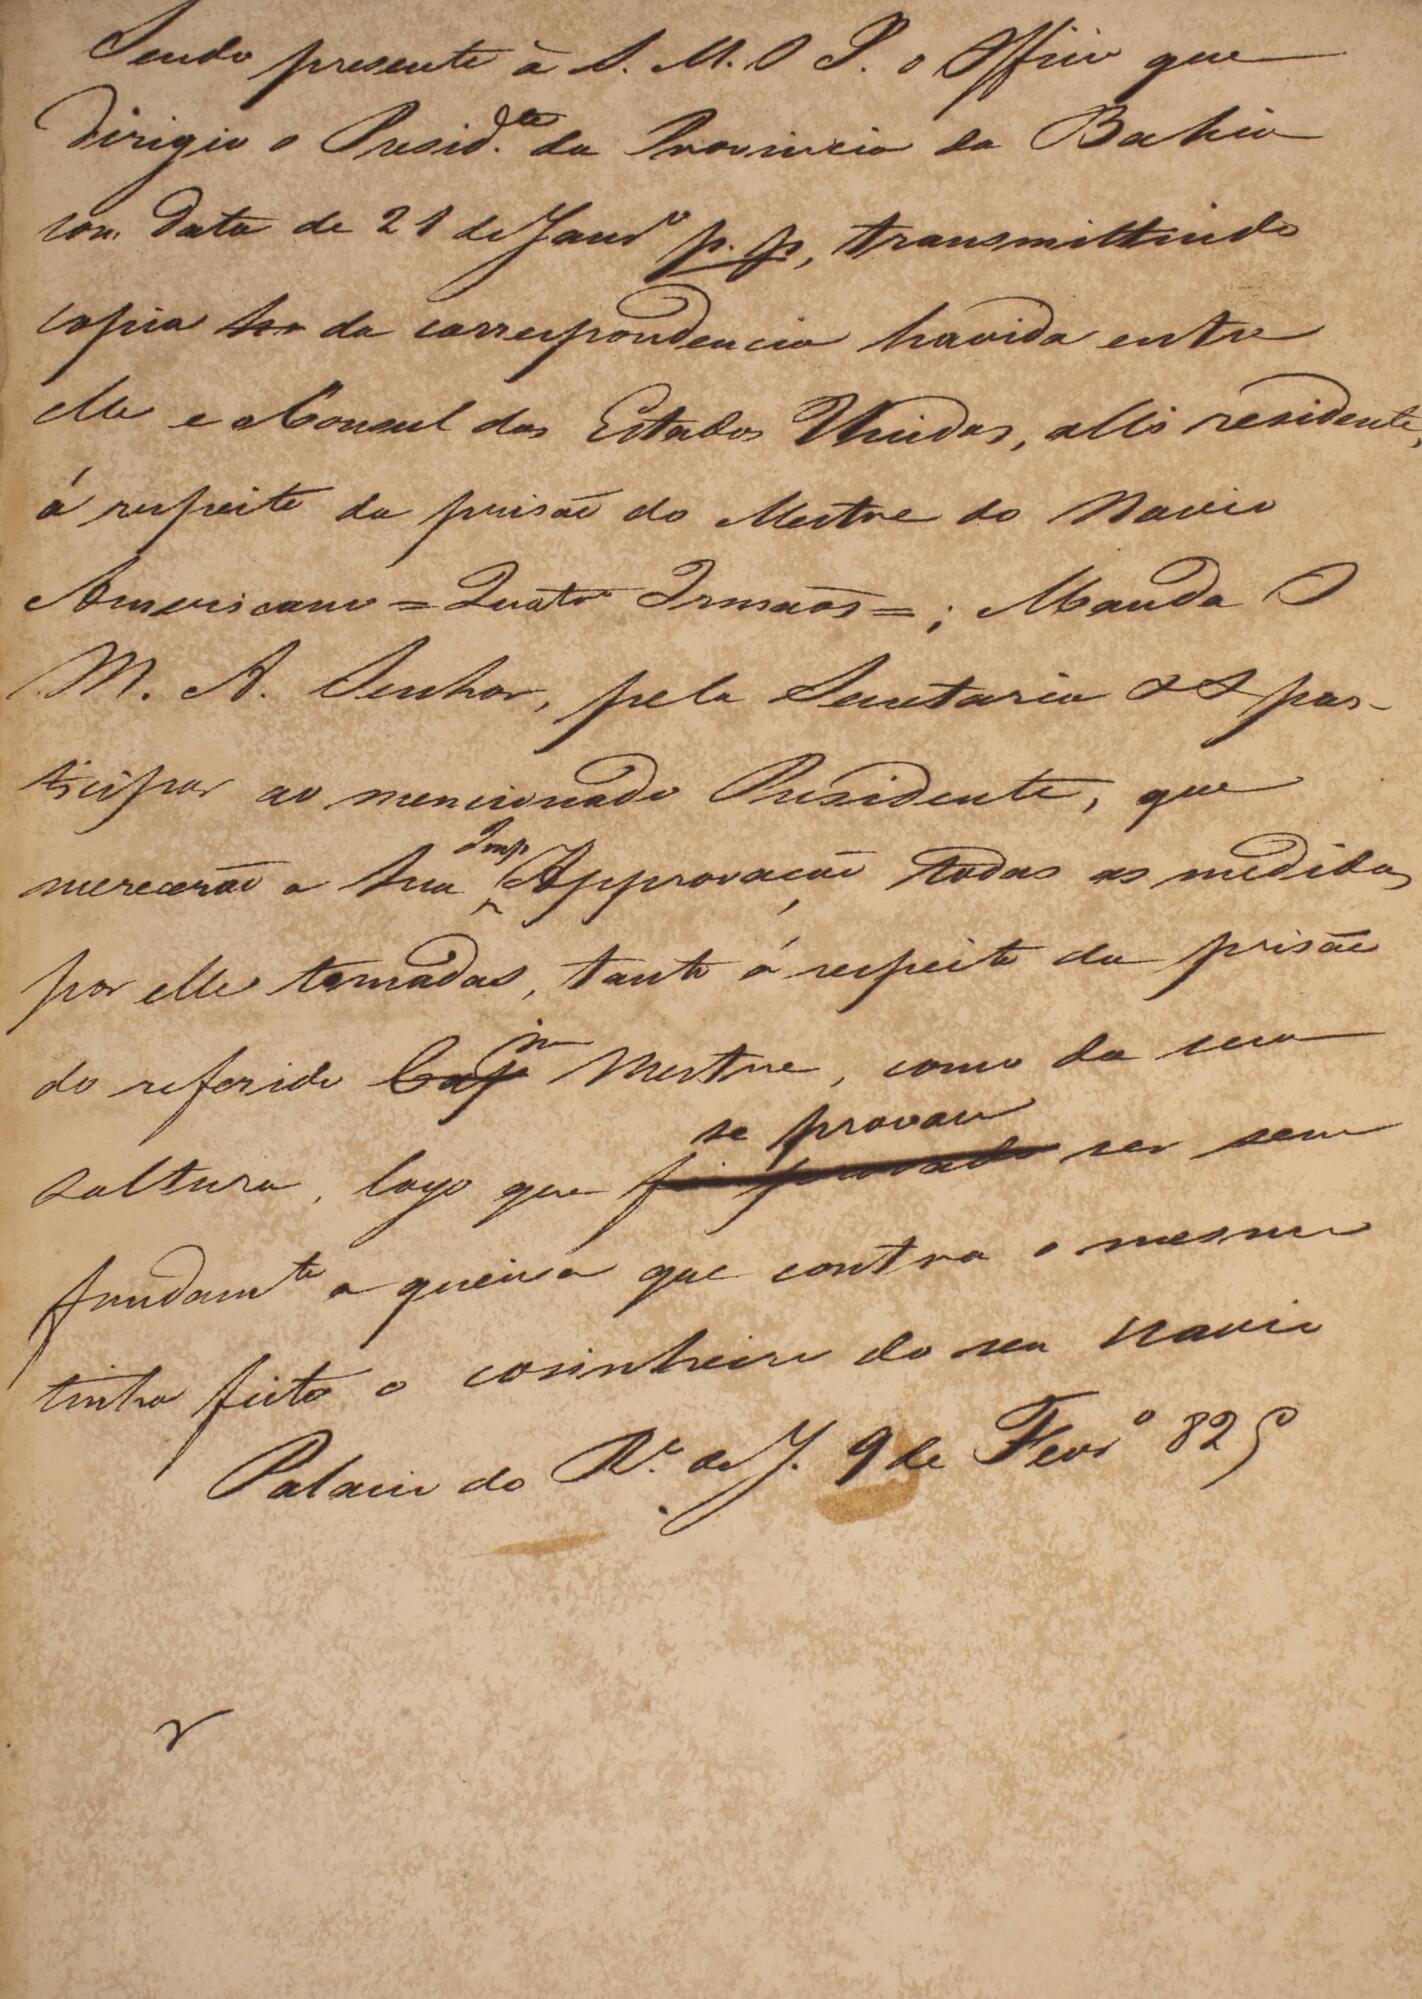 Sendo presente à S. M. O I. o Officio que
dirigio o Presid.te da Provincia da Bahia
com data de 21 de Janrº p. p., transmittindo
copia da correspondencia havida entre
elle e o Consul dos Estados Unidos, alli residente,
á respeito da prisão do Mestre do Navio
Americano = Quatro Irmaõs = ; Manda O
M. A. Senhor, pela Secretaria par-
ticipar ao mencionado Presidente, que
merecerão a Sua Imp Approvação todas as medidas
por elle tomadas, tanto á respeito da prisão
do referido Cap.m Mestre, como da sua
soltura, logo que foi provado se provou ser sem
fundamto a queixa que contra o mesmo
tinha feito o cosinheiro do seu Navio
Palacio do R.º de J. 9 de Fevrº 825